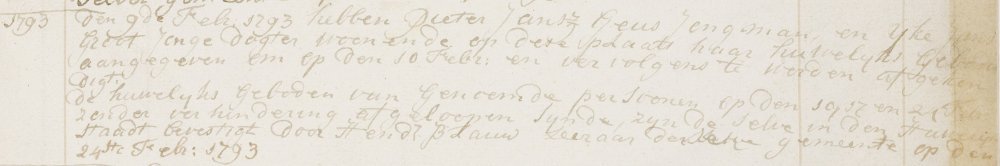 1793 den 9de Febr 1793 hebben Pieter Jansz Geus Jongman, en
Groot Jonge dogter woonende op dese plaats haar huwelyks Geboden
aangegeven om op den 10 Febr: en vervolgens te worden afgekon
digt.
de huwelyks Geboden van Genoemde persoonen op den 10, 17 en 24 Feb
zonder verhindering afgeloopen synde, zyn de selve in den Huwely
staadt bevestigt door Hendk Blauw Leeraar der gemeente op den
24ste Febr: 1793